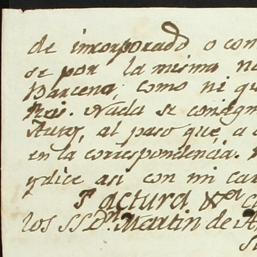 de incorporado o con
se por la misma na
Barcena, como ni qu
Rois. Nada se consign
al paso que, a
en la correspondencia.
ydice asi con mi car
Factura
los SS Dn. Martin de A